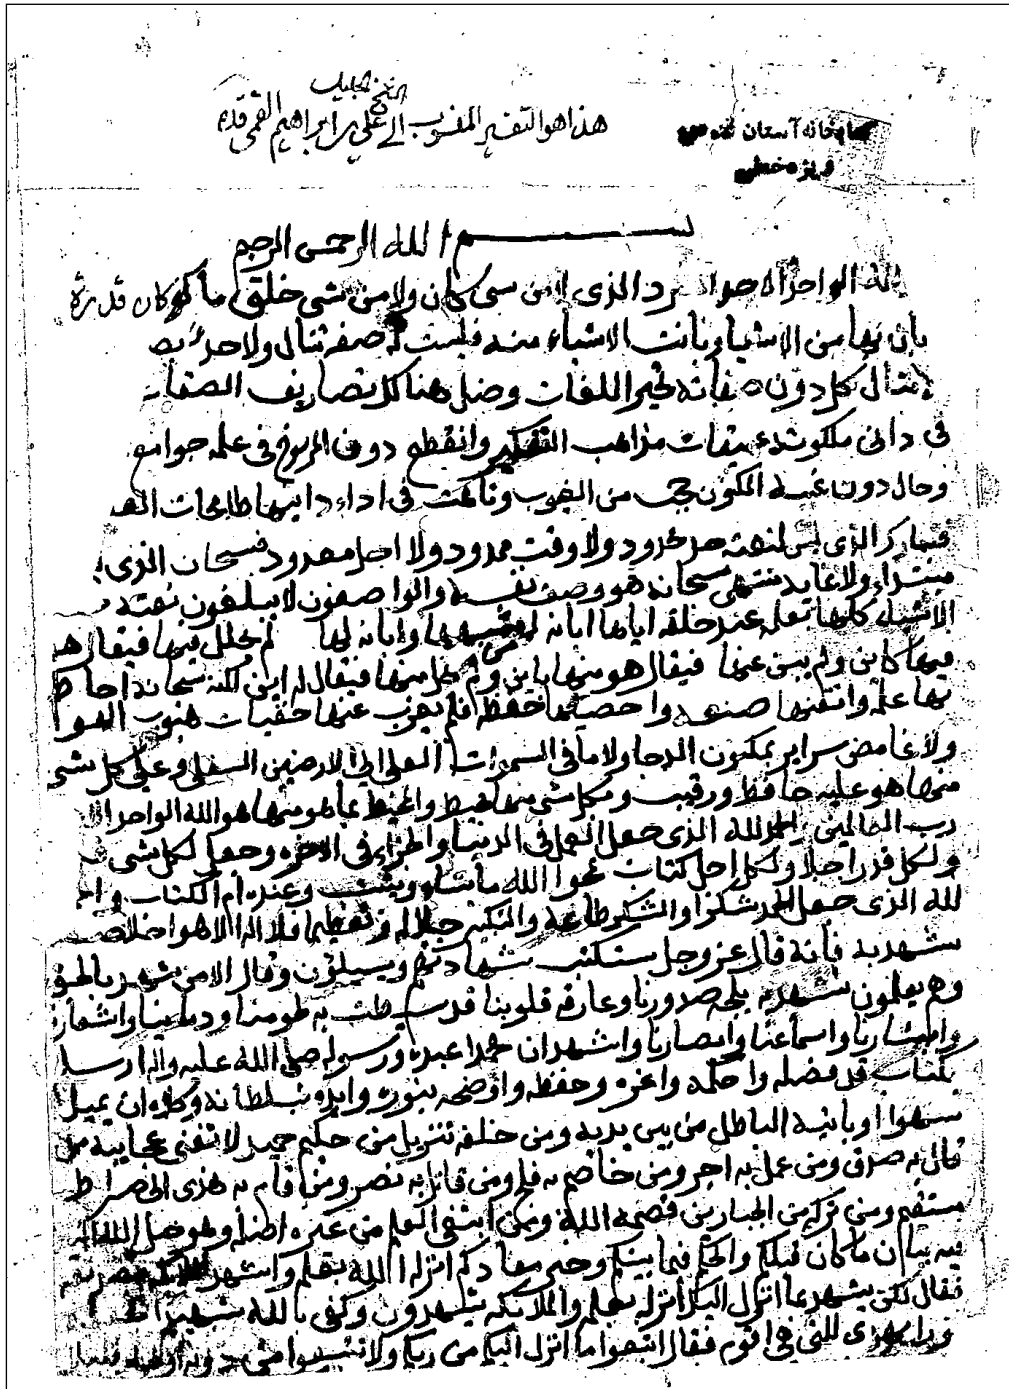 الشيخ الجليل
هذا هو التفسير المنسوب الى علي بن ابراهيم القمي قده
كتابخانه آستان قدس
ویژه خطی
بسم الله الرحمن الرحيم
الواحد الاحد الذي لا من شي كان ولا من شي خلق ما كان قدرة
بان بها من الاشياء وبانت الاشياء منه فليست له صفة تنال ولا حد
الامثال كل دون صفاته تحبير اللغات وضل هنالك تصاريف الصفات
في ملكوته عميقات مذاهب التفكير وانقطع دون الرسوخ في علمه جوامع
وحال دون غيبه المكنون حجب من الغيوب وتاهت في اداء دانيها طامحات
فتبارك الذي ليس لنعته حد محدود ولا وقت ممدود ولا اجل معدود فسبحان الذي
مبتداء ولا غاية منتهى سبحانه هو وصف نفسه والواصفون لا يبلغون نعته
الاشياء كلها بعلمه عند خلقه اياها ابانة لها وابانة لها لم يحلل فيها فيقال هو
فيها كاين ولم يبن عنها فيقال هو منها باين ولم يخل منها فيقال له اين لكنه سبحانه احاط
بها علمه واتقنها صنعه واحصيها حفظه فلم يعزب عنها خفيات غيوب الهوا
ولا غامض سراير مكنون الدجا ولا ما في السموات العلى الى الارضين السفلى وعلى كل شي
منها هو عليه حافظ ورقيب وكل شي منها محيط والمحيط بما منها هو الله الواحد
رب العالمين الحمد لله الذي جعل العمل في الدنيا والجزاء في الاخرة وجعل لكل شي
ولكل قدر اجلا ولكل اجل كتاب يمحوا الله ما يشاء ويثبت وعنده ام الكتاب
لله الذي جعل الحمد شكرا والشكر طاعة والتكبير جلالة وتعظيما فلا اله الا هو اخلاصا
نشهد به فانه قال عز وجل ستكتب شهادتهم ويسئلون وقال الا من شهد بالحق
وهم يعلمون نشهد به بلجة صدورنا وعارفة قلوبنا قد به لحومنا ودمائنا واشعارنا
وابشارنا واسماعنا وابصارنا واشهد ان محمدا عبده ورسوله صلى الله عليه واله ارسله
بكتاب قد فصله واحكمه واعزه وحفظه واوضحه بنوره وايده بسلطانه ان يميل
سهوا او ياتيه الباطل من بين يديه ومن خلفه تنزيل من حكيم حميد لا تفنى عجايبه من
قال به صدق ومن عمل به اجر ومن خاصم به فلج ومن قاتل به نصر ومن قام به هدى الى صراط
مستقيم ومن تركه من الجبارين قصمه الله ومن ابتغى العلم من غيره اضله وهو حبل الله
فيه بيان ما كان قبلكم والحكم فيما بينكم وخبر معادكم انزله الله بعلمه واشهد
فقال لكن يشهد بما انزل اليك انزله بعلمه والملائكة يشهدون وكفى بالله شهيدا
يهدي للتي هي اقوم فقال اتبعوا ما انزل اليكم من ربكم ولا تتبعوا من دونه اولياء